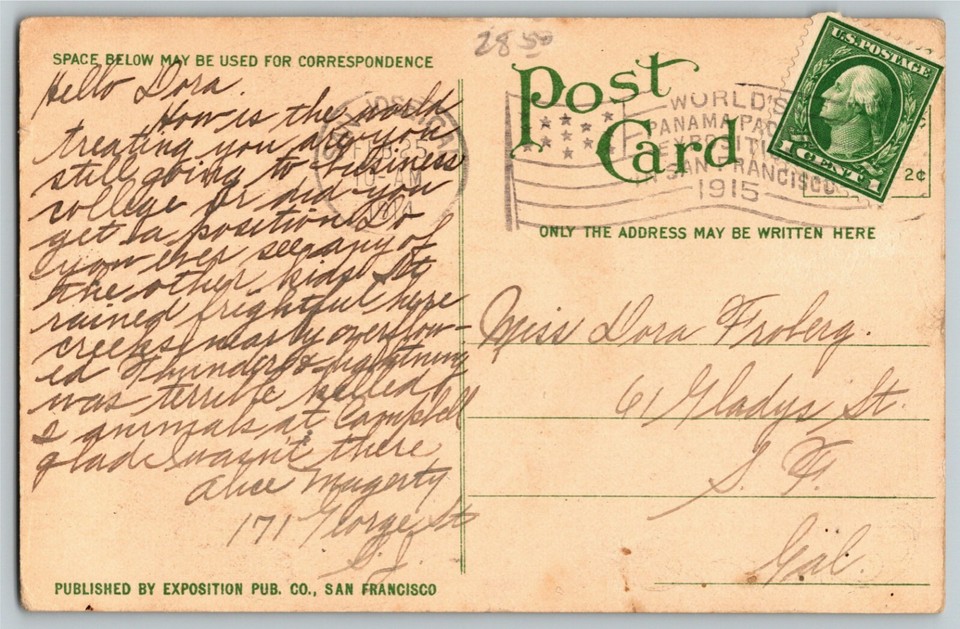 28.50
SPACE BELOW MAY BE USED FOR CORRESPONDENCE
Hello Dora.
How is the world
treating you are you
still going to business
college or did you
get a position Do
you ever see any of
the other kids. It
rained frightful here
creeks nearly overflow-
ed Thunder & lightning
was terrible killed
2 animals at Campbell
glad I wasn't there
Alice Magerty
171 George St
S.J.
PUBLISHED BY EXPOSITION PUB. CO., SAN FRANCISCO
Post
Card
JOSE
FEB 25
10-AM
1914
WORLD'S
PANAMA PAC
EXPOSITION
SAN FRANCISCO
1915
U.S. POSTAGE
1 CENT 1
2¢
ONLY THE ADDRESS MAY BE WRITTEN HERE
Miss Dora Froberg.
61 Gladys St.
S. F.
Cal.